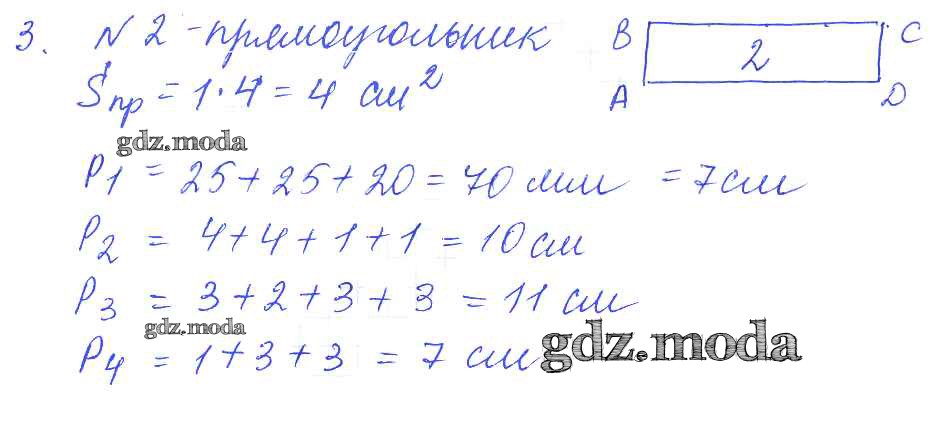 3. N 2 - прямоугольник
B C
2
Sпр = 1 · 4 = 4 см²
A D
gdz.moda
P1 = 25 + 25 + 20 = 70 мм = 7 см
P2 = 4 + 4 + 1 + 1 = 10 см
P3 = 3 + 2 + 3 + 3 = 11 см
gdz.moda
P4 = 1 + 3 + 3 = 7 см
gdz.moda